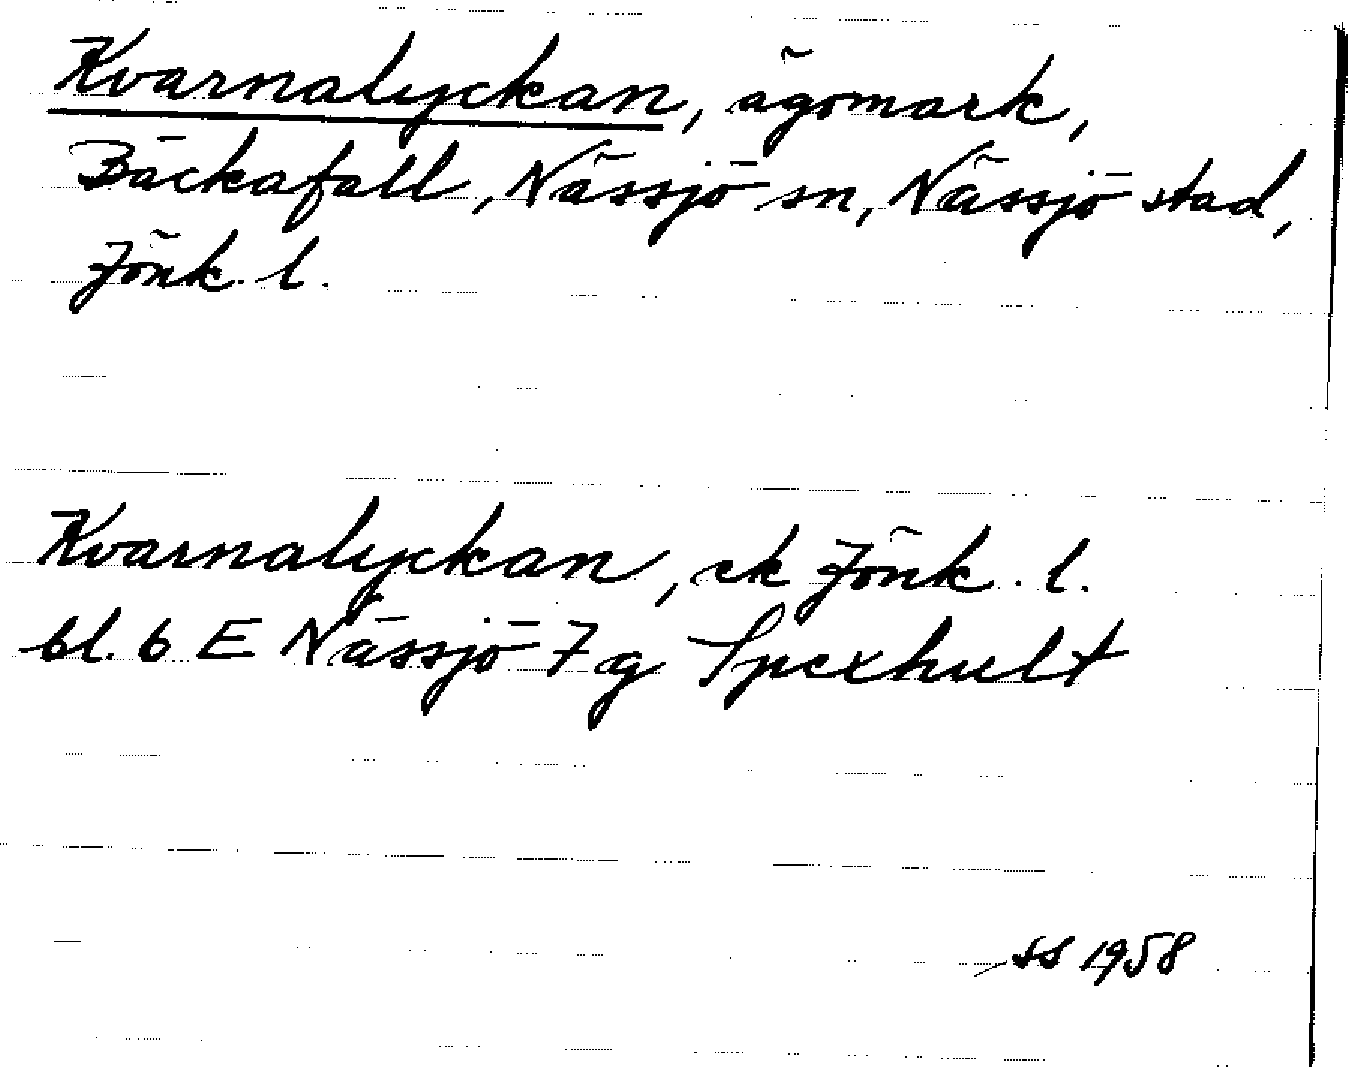 Kvarnalyckan, ägomark,
Bäckafall, Nässjö sn, Nässjö stad,
Jönk. l.
Kvarnalyckan, ek Jönk. l.
bl. 6 E Nässjö 7 g Spexhult
SS 1958